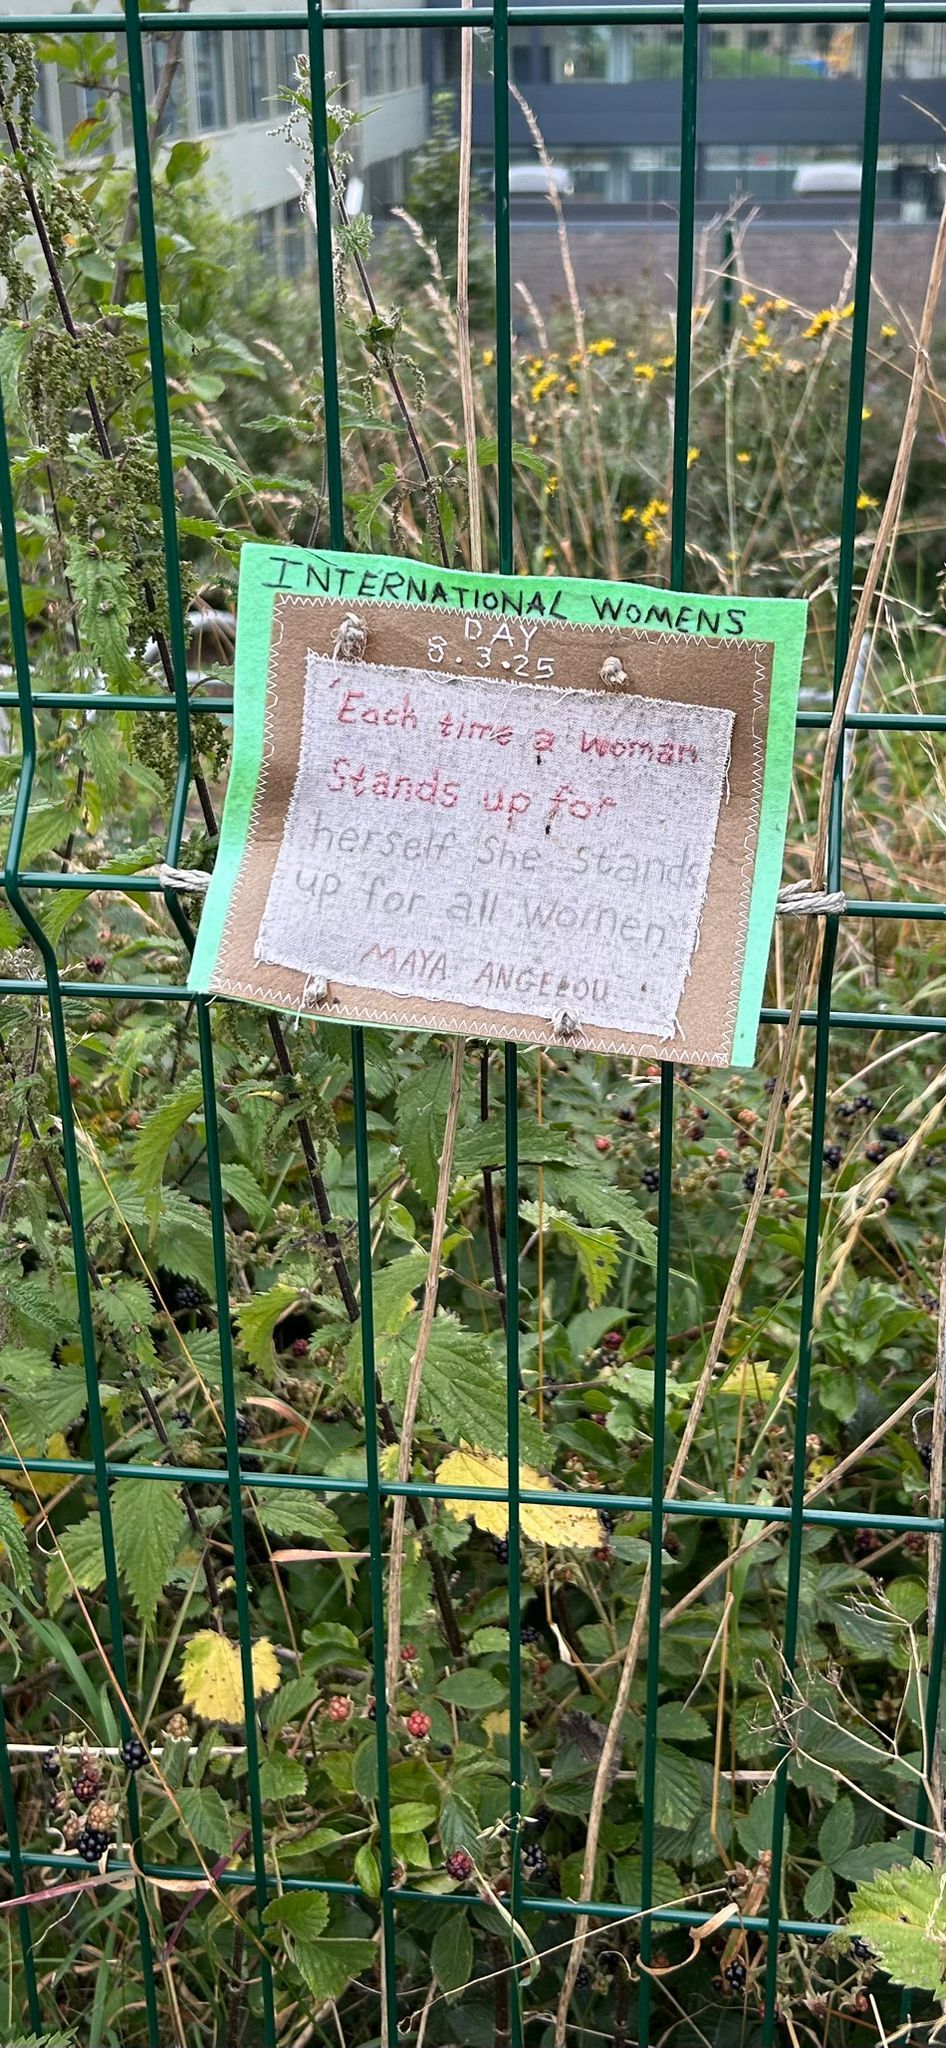 INTERNATIONAL WOMENS
DAY
8.3.25
'Each time a woman
Stands up for
herself She Stands
up for all women"
MAYA ANGELOU